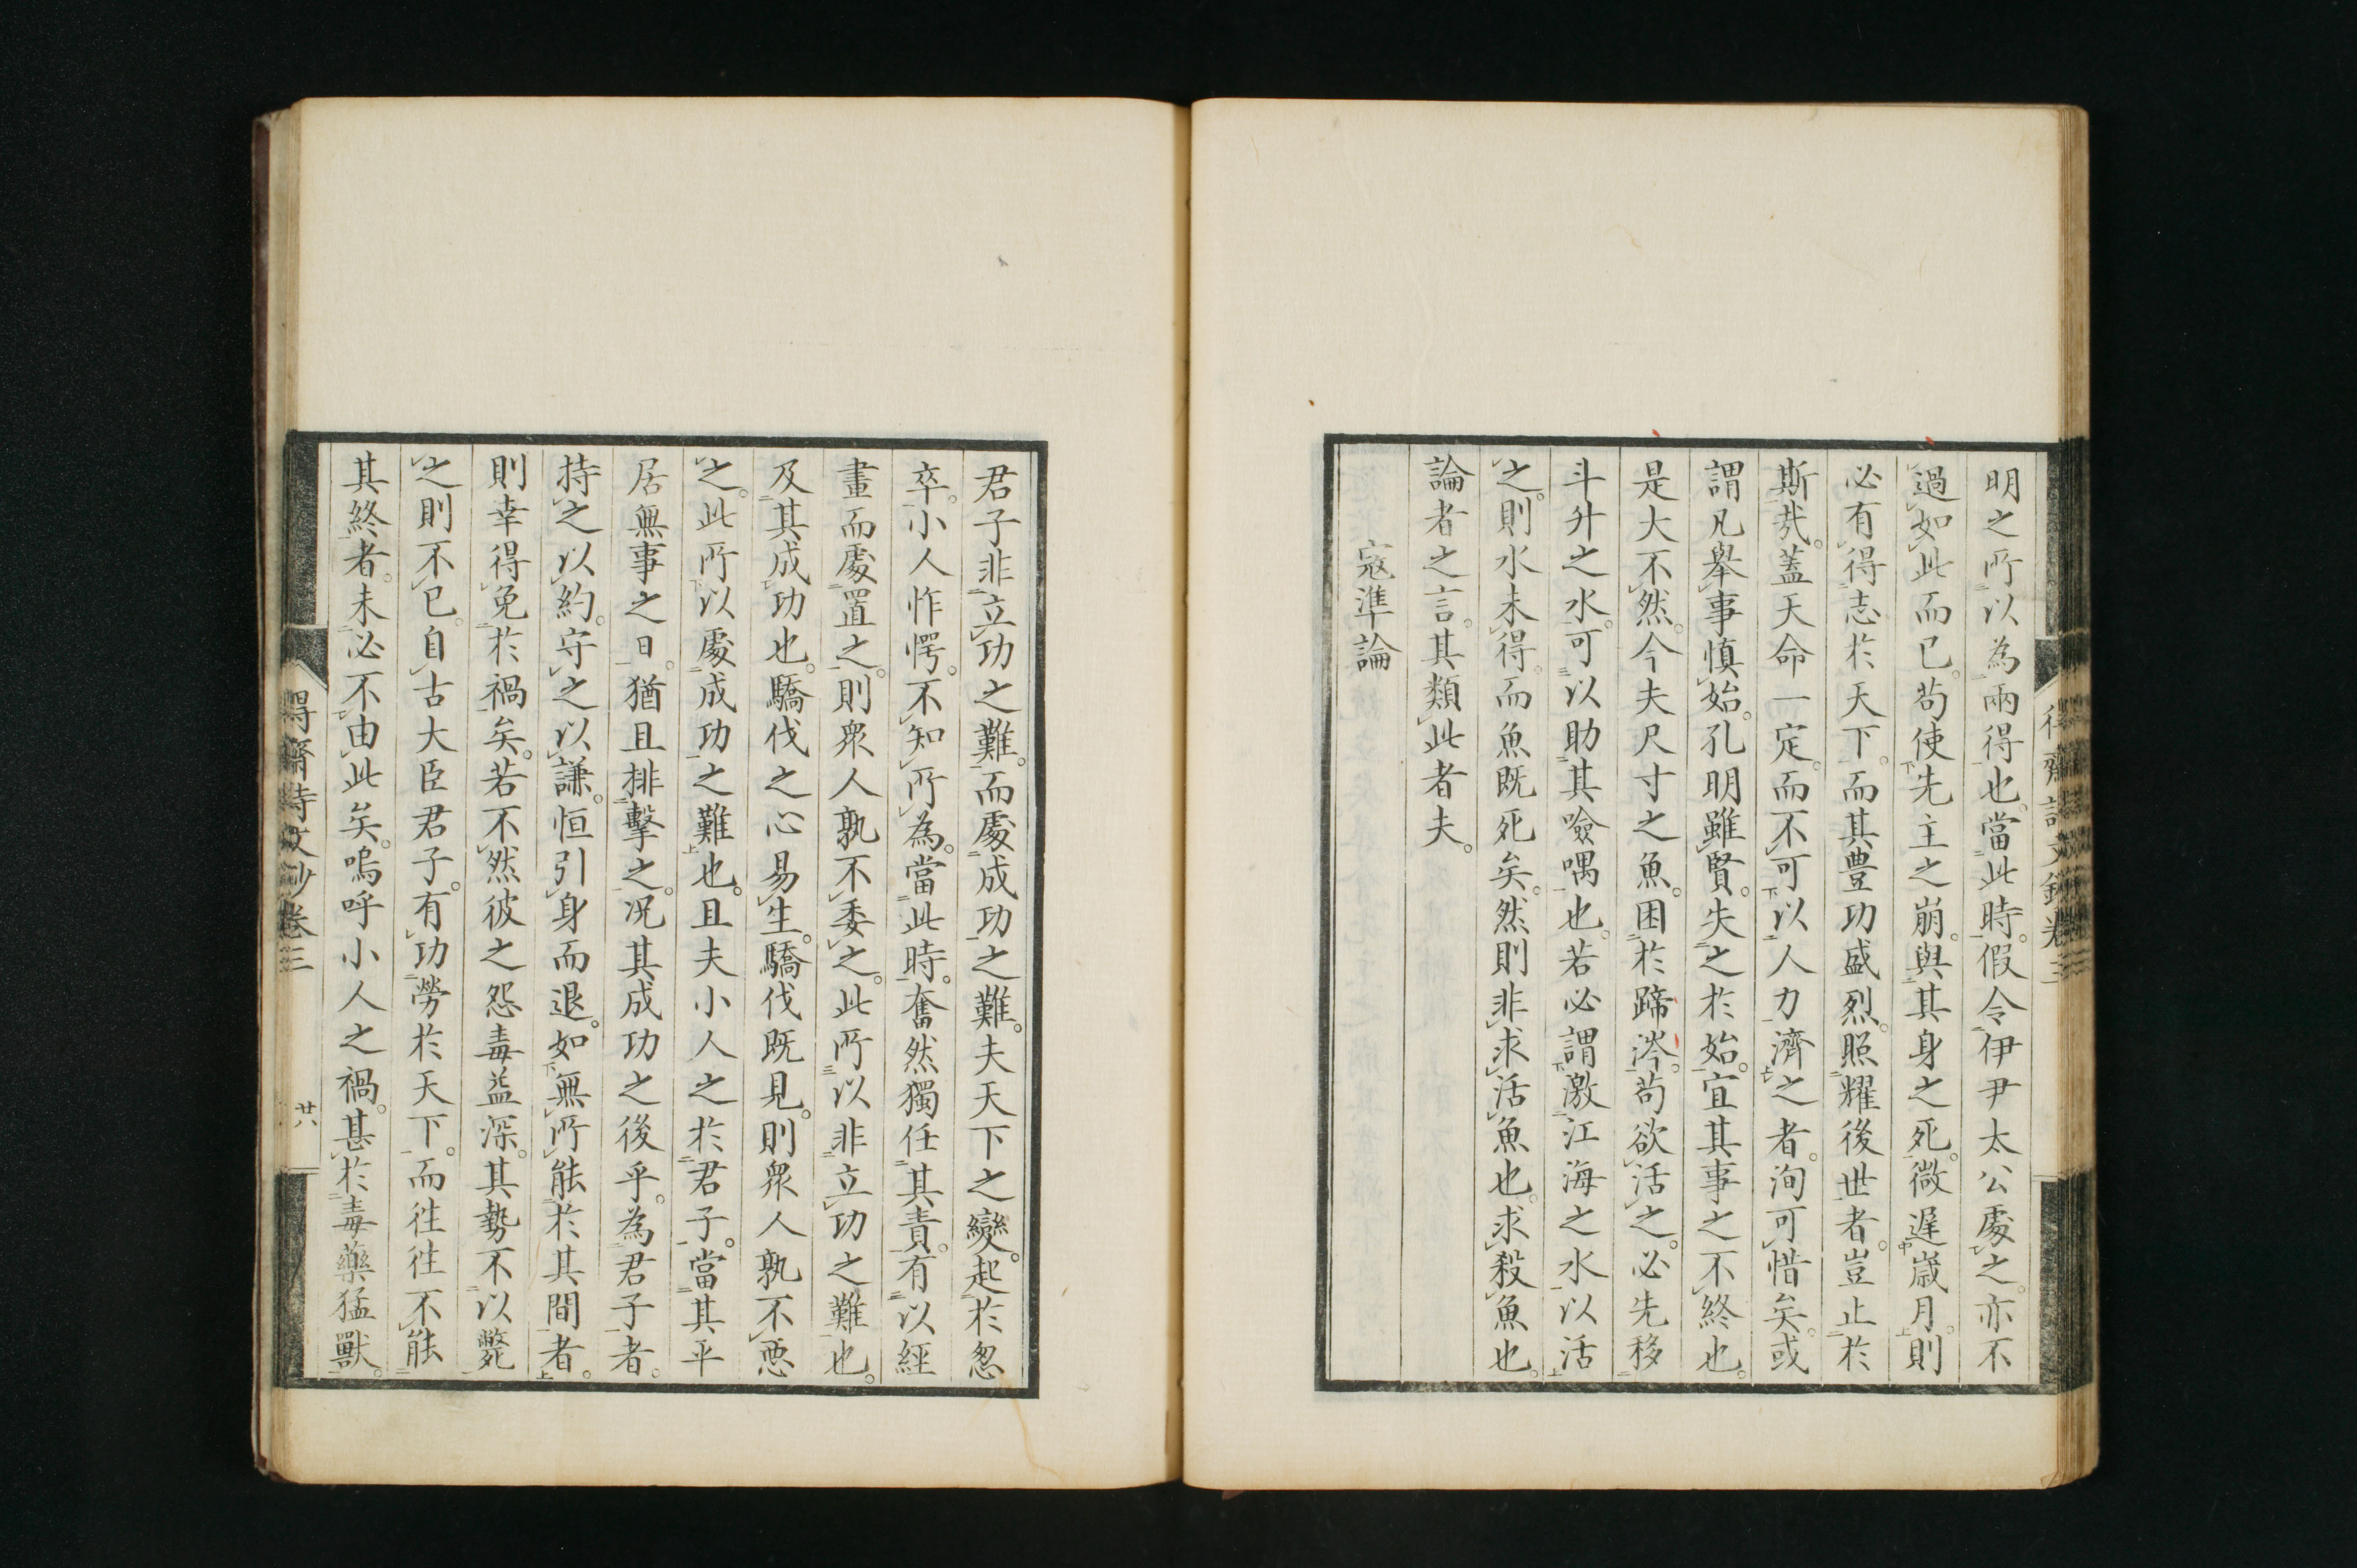 明之所以為兩得也。當此時。假令伊尹太公處之。亦不
過如此而已。苟使先主之崩。與其身之死。微遲歲月。則
必有得志於天下。而其豊功盛烈。照耀後世者。豈止於
斯哉。蓋天命一定。而不可以人力濟之者。洵可惜矣。或
謂凡舉事慎始。孔明雖賢。失之於始。宜其事之不終也。
是大不然。今夫尺寸之魚。困於蹄涔。苟欲活之。必先移
斗升之水。可以助其噞喁也。若必謂激江海之水以活
之。則水未得。而魚既死矣。然則非求活魚也。求殺魚也。
論者之言。其類此者夫。
寇準論
君子非立功之難。而處成功之難。夫天下之變。起於忽
卒。小人怍愕。不知所為。當此時。奮然獨任其責。有以經
畫而處置之。則衆人孰不委之。此所以非立功之難也。
及其成功也。驕伐之心易生。驕伐既見。則衆人孰不惡
之。此所以處成功之難也。且夫小人之於君子。當其平
居無事之日。猶且排擊之。况其成功之後乎。為君子者。
持之以約。守之以謙。恒引身而退。如無所能於其間者。
則幸得免於禍矣。若不然彼之怨毒益深。其勢不以斃
之則不已。自古大臣君子。有功勞於天下。而往往不能
其終者。未必不由此矣。嗚呼小人之禍。甚於毒藥猛獸。
得齋詩文鈔卷三
廿六